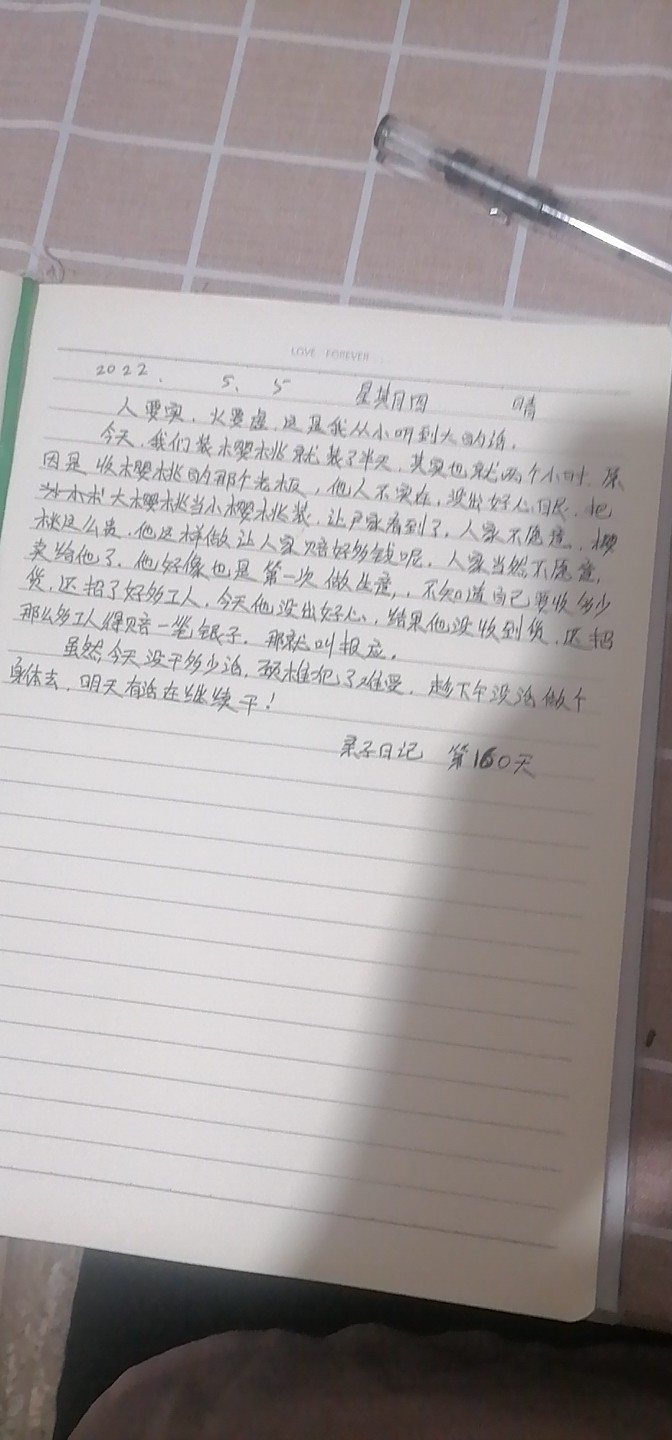 LOVE FOREVER
2022. 5. 5 星期四 晴
人要实，火要虚，这是我从小听到大的话。
今天，我们装樱桃就装了半天，其实也就两个小时，原
因是收樱桃的那个老板，他人不实在，没出好心眼，把
大樱桃当小樱桃装，让户家看到了，人家不愿意，樱
桃这么贵，他这样做让人家赔好多钱呢，人家当然不愿意，
卖给他了，他好像也是第一次做生意，不知道自己要收多少
货，还招了好多工人，今天他没出好心，结果他没收到货，还招
那么多工人得赔一笔银子，那就叫报应。
虽然今天没干多少活，颈椎犯了难受，趁下午没活做个
身体去，明天有活在继续干！
日记 第160天